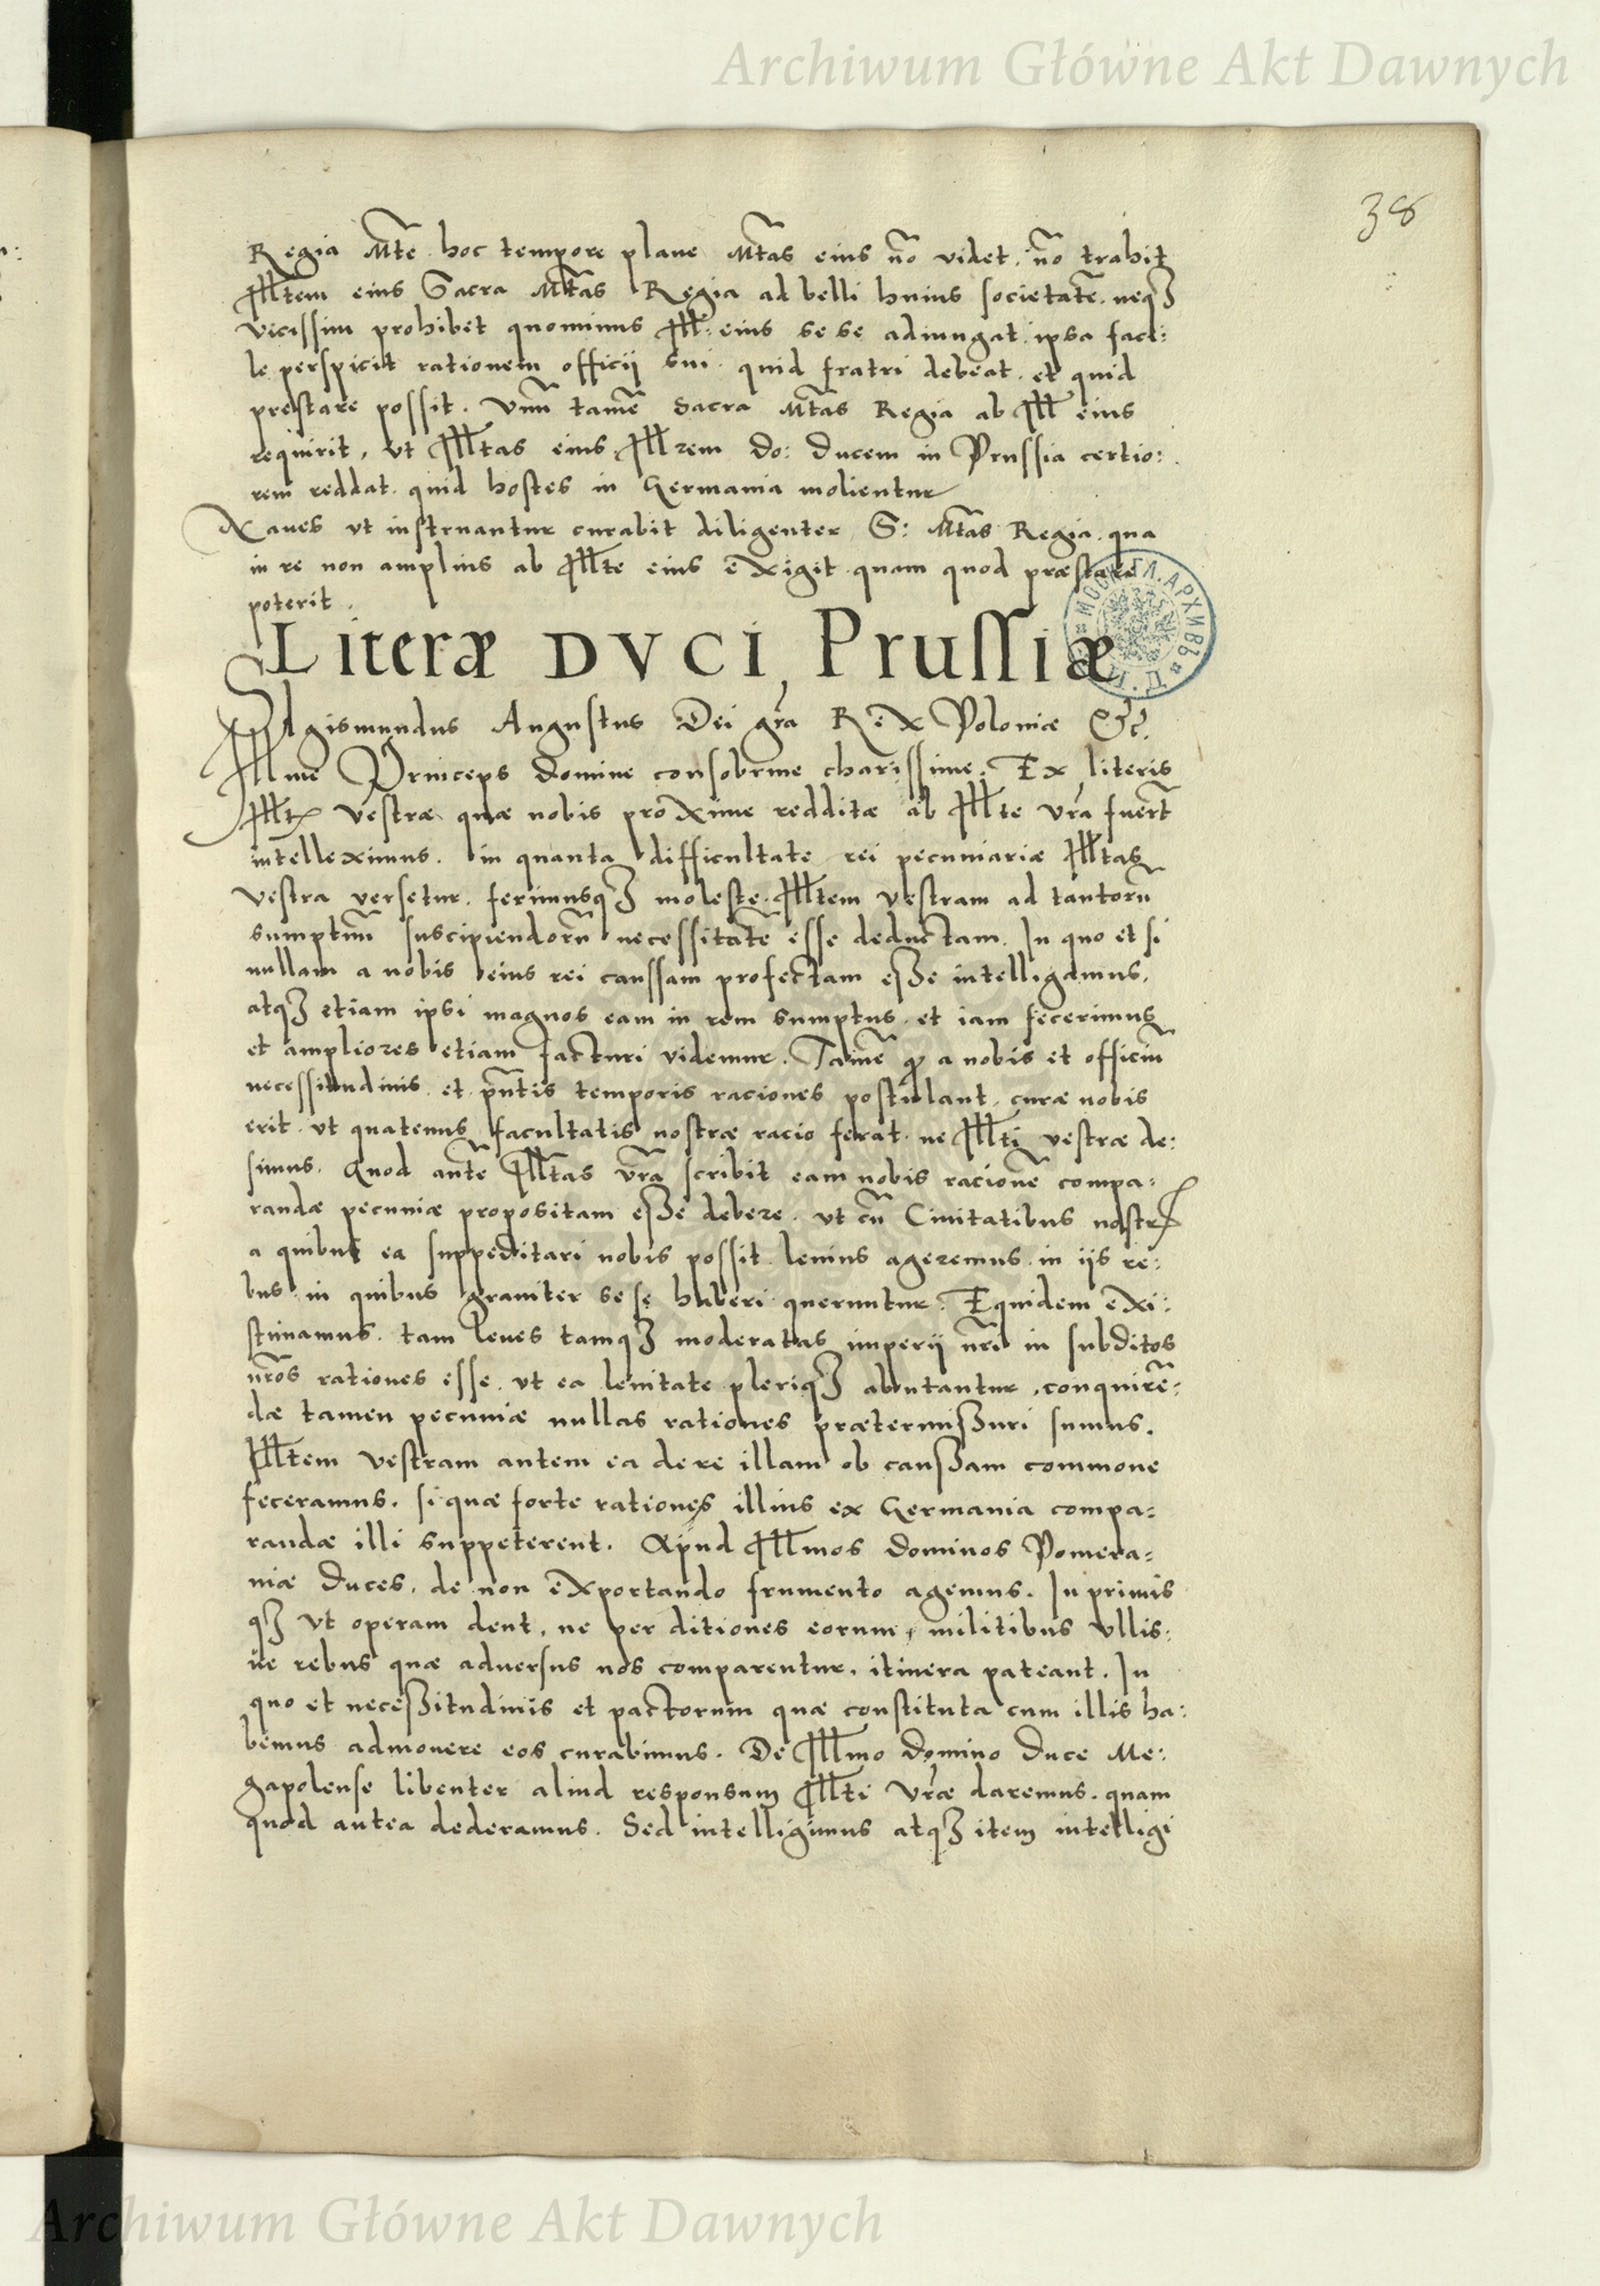 Archiwum Główne Akt Dawnych
38
Regia Mte hoc tempore plane Mtas eius no videt. no trahit
Illtem eius Sacra Mtas Regia ad belli huius societate. neqз
vicissim prohibet quominus Ill: eius se se adiungat. ipsa faci:
le perspicit rationem officij sui. quid fratri debeat. et quid
prestare possit. Unu tame Sacra Mtas Regia ab Ill eius
requirit, ut Illtas eius Illrem do: Ducem in Prussia certio:
rem reddat. quid hostes in Germania molientur
Naues ut instruantur curabit diligenter S: Mtas Regia. qua
in re non amplius ab Illte eius exigit quam quod præstare
poterit.
Literæ DVCI Prussiæ
Sigismundus Augustus Dei gra Rex Poloniæ &c.
Illme Princeps domine consobrine charissime. Ex literis
Illtis vestræ quæ nobis proxime redditæ ab Illte vra fuert
intelleximus. in quanta difficultate rei pecuniariæ Illtas
vestra versetur. ferimusqз moleste. Illtem vestram ad tantoru
sumptuu suscipiendoru necessitate esse deductam. In quo et si
nullam a nobis eius rei caussam profectam esse intelligamus,
atqз etiam ipsi magnos eam in rem sumptus. et iam fecerimus
et ampliores etiam facturi videmur. Tame qd a nobis et officiu
necessitudinis. et pntis temporis raciones postulant, curæ nobis
erit. ut quatenus facultatis nostræ racio ferat. ne Illti vestræ de:
simus. Quod aute Illtas vra scribit eam nobis racione compa-
randæ pecuniæ propositam esse debere. ut cu Ciuitatibus nostris
a quibus ea suppeditari nobis possit. lenius ageremus. in ijs re:
bus in quibus grauiter se se haberi queruntur. Equidem exi-
stimamus. tam leues tamqз moderatas imperij nri in subditos
nros rationes esse. ut ea lenitate. pleriqз abutantur, conquire-
dæ tamen pecuniæ nullas rationes prætermissuri sumus.
Illtem vestram autem ea de re illam ob caussam commone
feceramus. si quæ forte rationes illius ex Germania compa-
randæ illi suppeterent. Apud Illmos dominos Pomera-
niæ Duces, de non exportando frumento agemus. In primis
qз ut operam dent, ne per ditiones eorum, militibus vllis-
ue rebus quæ aduersus nos comparentur, itinera pateant. In
quo et necessitudinis et pactorum quæ constituta cum illis ha:
bemus admonere eos curabimus. De Illmo domino duce Me:
gapolense libenter aliud responsum Illti vræ daremus. quam
quod antea dederamus. Sed intelligimus atqз item intelligi
Archiwum Główne Akt Dawnych